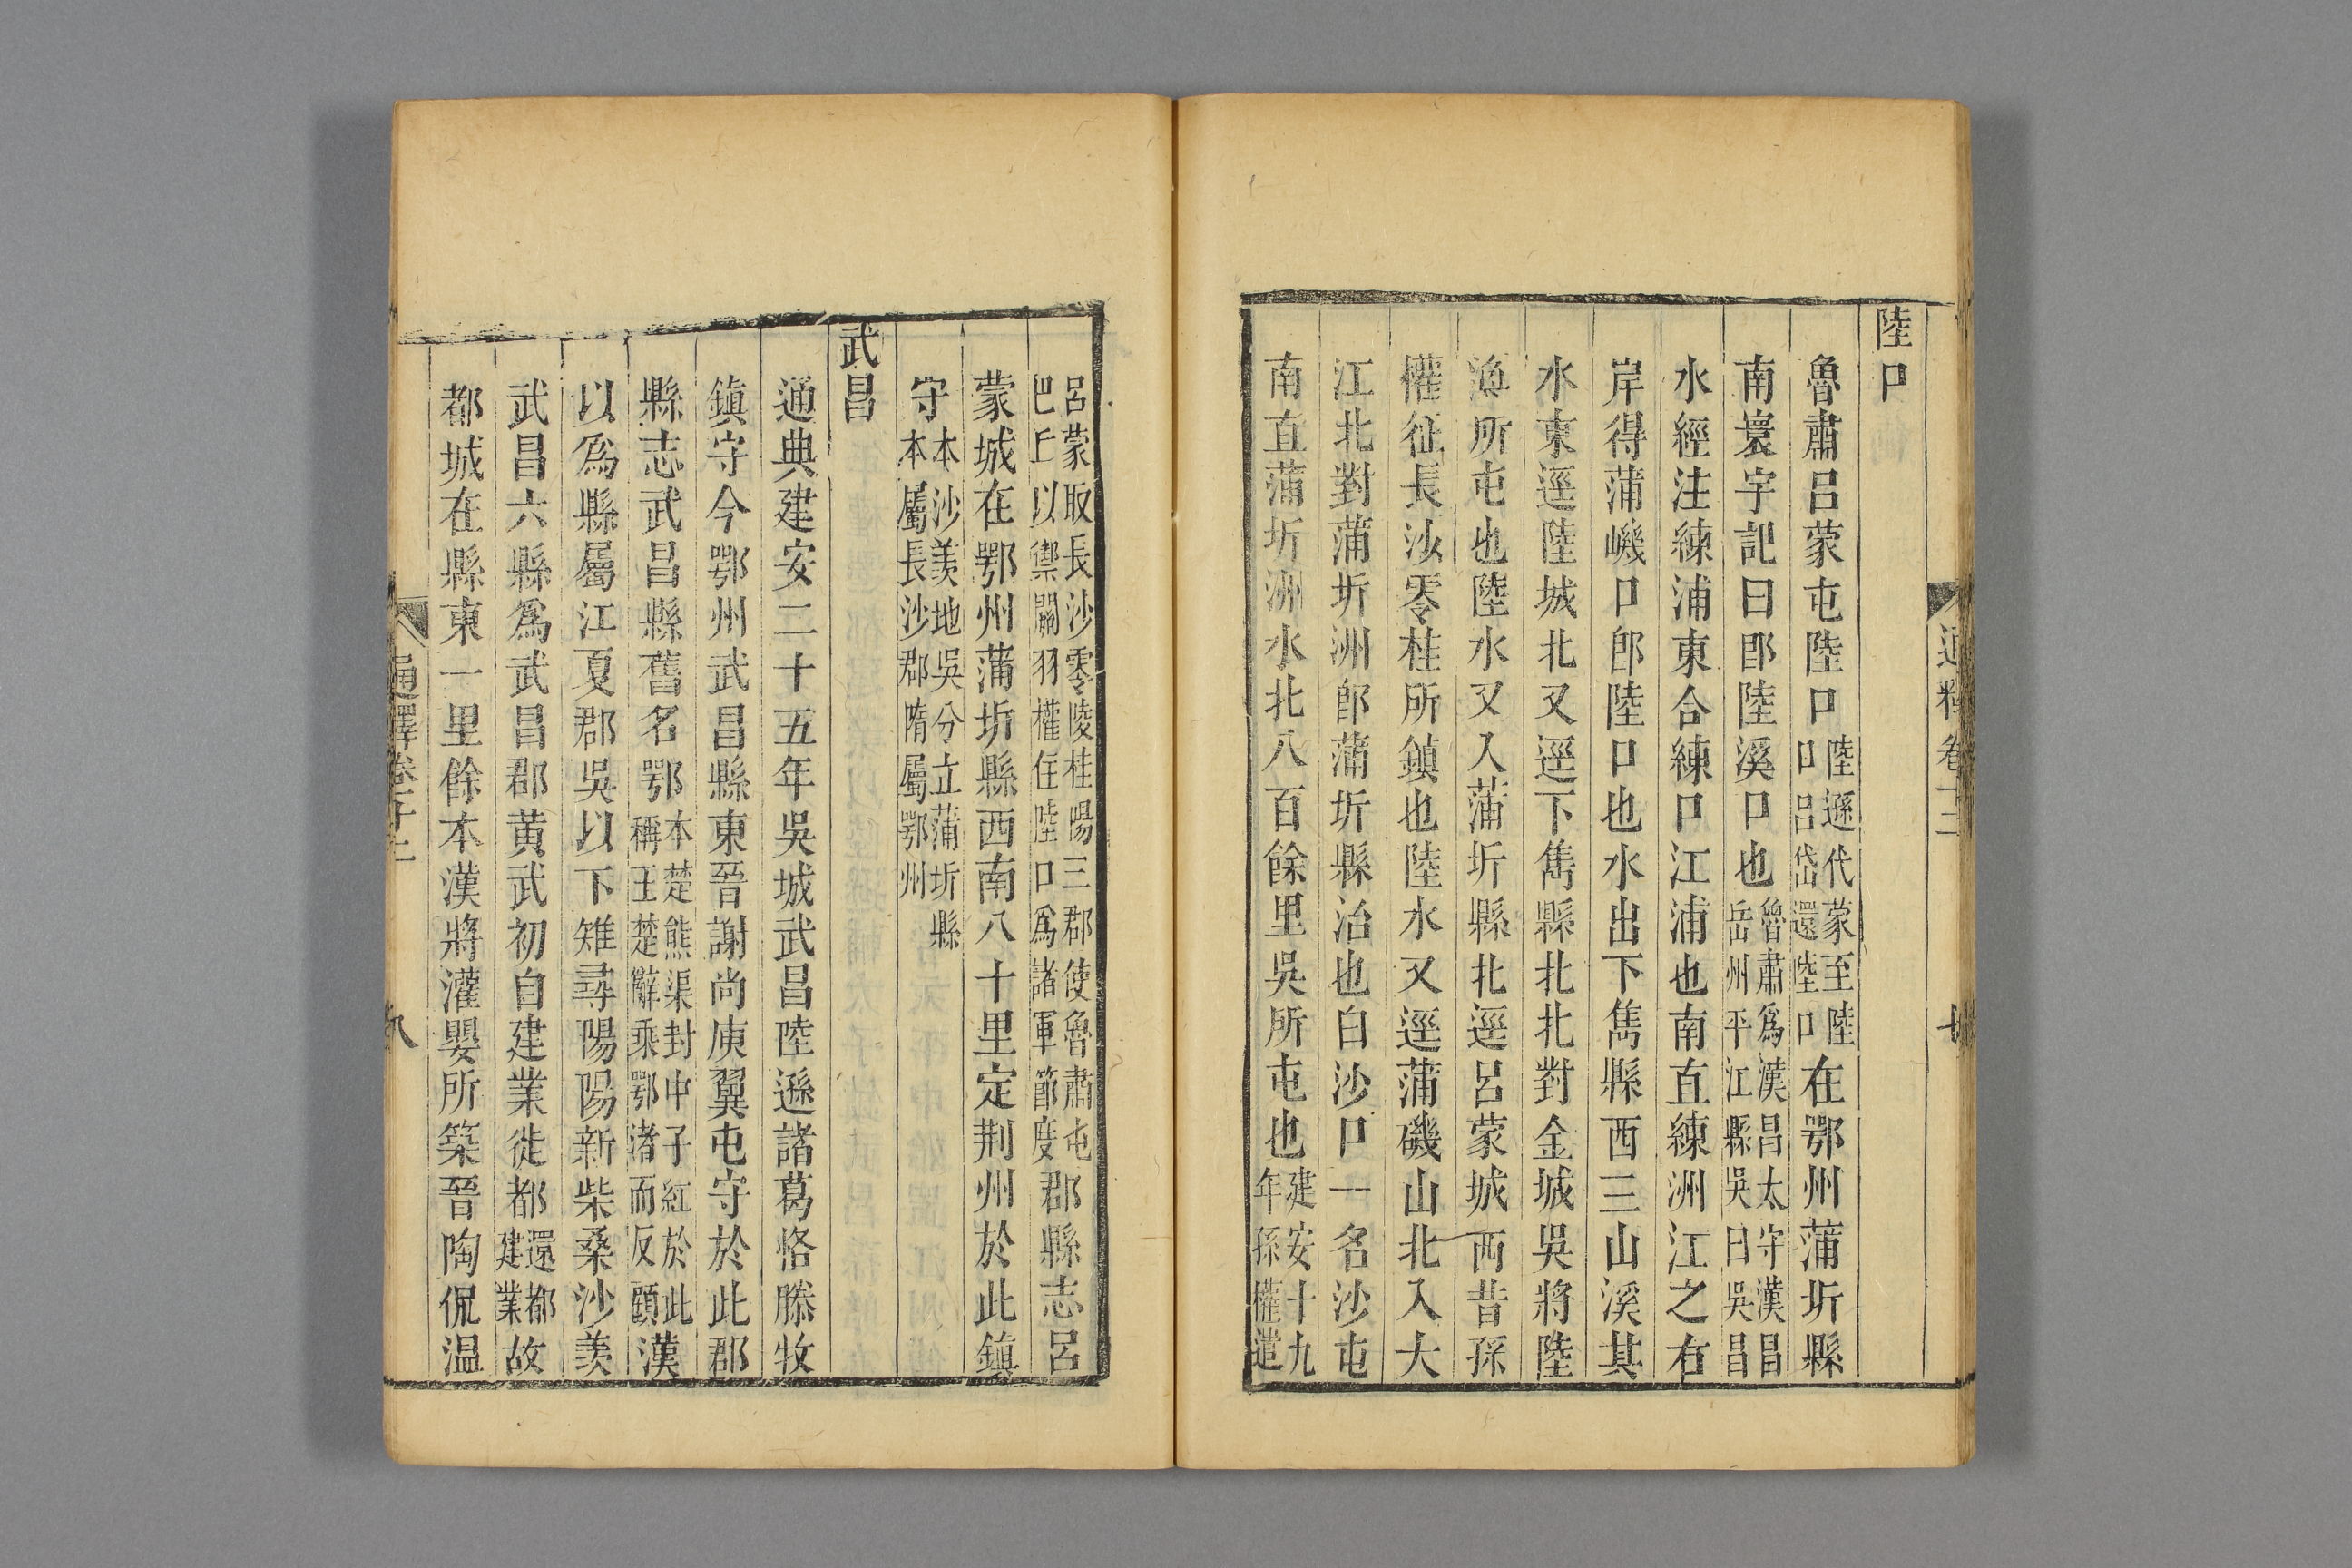 陸口
魯肅呂蒙屯陸口陸遜代蒙至陸口呂岱還陸口在鄂州蒲圻縣
南寰宇記曰卽陸溪口也魯肅爲漢昌太守漢昌岳州平江縣吳曰吳昌
水經注練浦東合練口江浦也南直練洲江之右
岸得蒲嶬口卽陸口也水出下雋縣西三山溪其
水東逕陸城北又逕下雋縣北北對金城吳將陸
渙所屯也陸水又入蒲圻縣北逕呂蒙城西昔孫
權征長沙零桂所鎮也陸水又逕蒲磯山北入大
江北對蒲圻洲卽蒲圻縣治也白沙口一名沙屯
南直蒲圻洲水北八百餘里吳所屯也建安十九年孫權遣
呂蒙取長沙零陵桂陽三郡使魯肅屯巴丘以禦關羽權住陸口爲諸軍節度郡縣志呂
蒙城在鄂州蒲圻縣西南八十里定荆州於此鎮
守本沙羡地吳分立蒲圻縣本屬長沙郡隋屬鄂州
武昌
通典建安二十五年吳城武昌陸遜諸葛恪滕牧
鎮守今鄂州武昌縣東晉謝尚庾翼屯守於此郡
縣志武昌縣舊名鄂本楚熊渠封中子紅於此稱王楚辭乘鄂渚而反顧漢
以爲縣屬江夏郡吳以下雉尋陽陽新柴桑沙羡
武昌六縣爲武昌郡黃武初自建業徙都還都建業故
都城在縣東一里餘本漢將灌嬰所築晉陶侃温
通釋卷十二
八